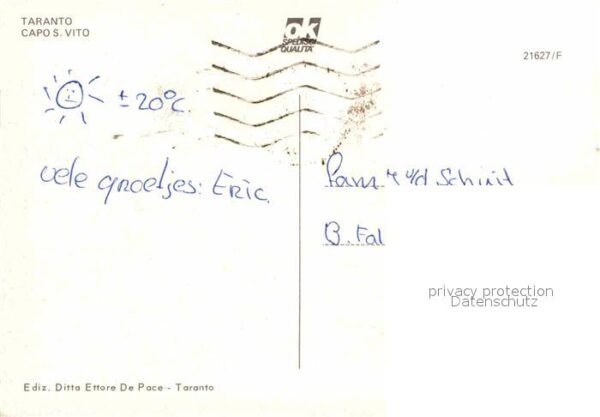 TARANTO
CAPO S. VITO
ok
SPEDISCI
QUALITÀ
21627/F
± 20°C
vele groetjes: Eric.
v/d
B. Fal
privacy protection
Datenschutz
Ediz. Ditta Ettore De Pace - Taranto